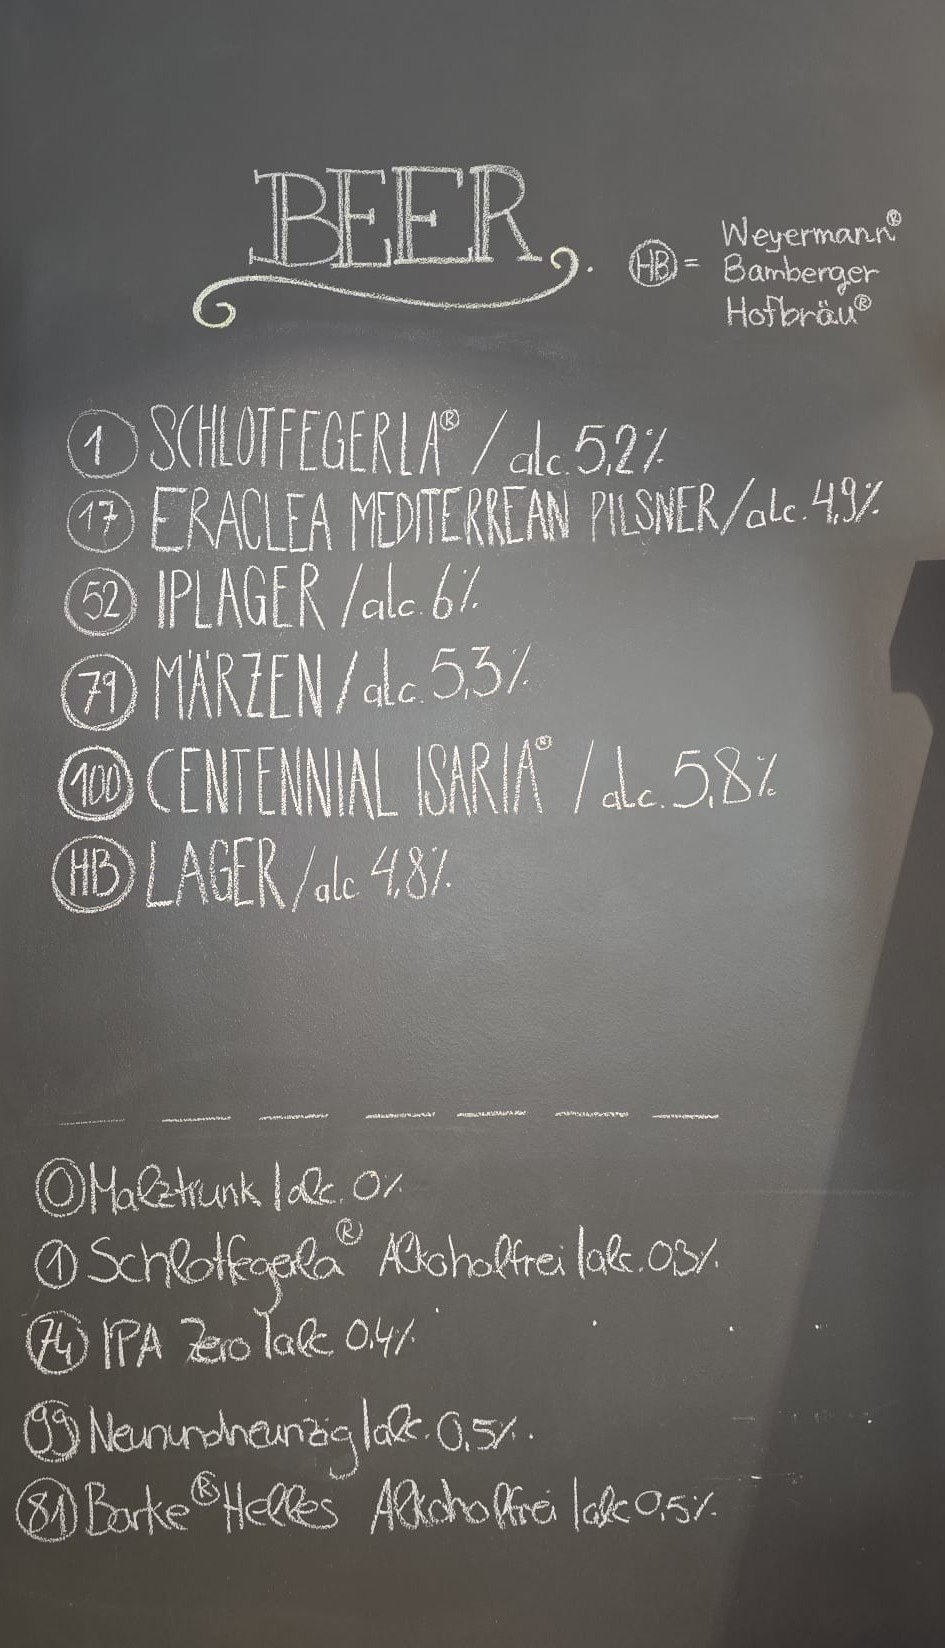 BEER.
HB = Weyermann®
Bamberger
Hofbräu®
1 SCHLOTFEGERLA® / alc. 5,2%
17 ERACLEA MEDITERREAN PILSNER / alc. 4,9%
52 IPLAGER / alc. 6%
79 MÄRZEN / alc. 5,3%
100 CENTENNIAL ISARIA® / alc. 5,8%
HB LAGER / alc 4,8%
0 Malztrunk | alc. 0%
1 Schlotfegerla® Alkoholfrei | alc. 0,3%
74 IPA Zero | alc 0,4%
99 Neunundneunzig | alc. 0,5%.
81 Barke® Helles Alkoholfrei | alc 0,5%